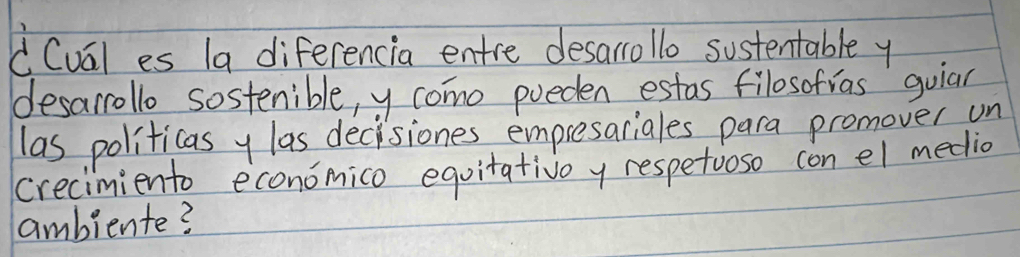 ¿Cuál es la diferencia entre desarrollo sustentable y
desarrollo sostenible, y cómo pueden estas filosofías guiar
las políticas y las decisiones empresariales para promover un
crecimiento económico equitativo y respetuoso con el medio
ambiente?